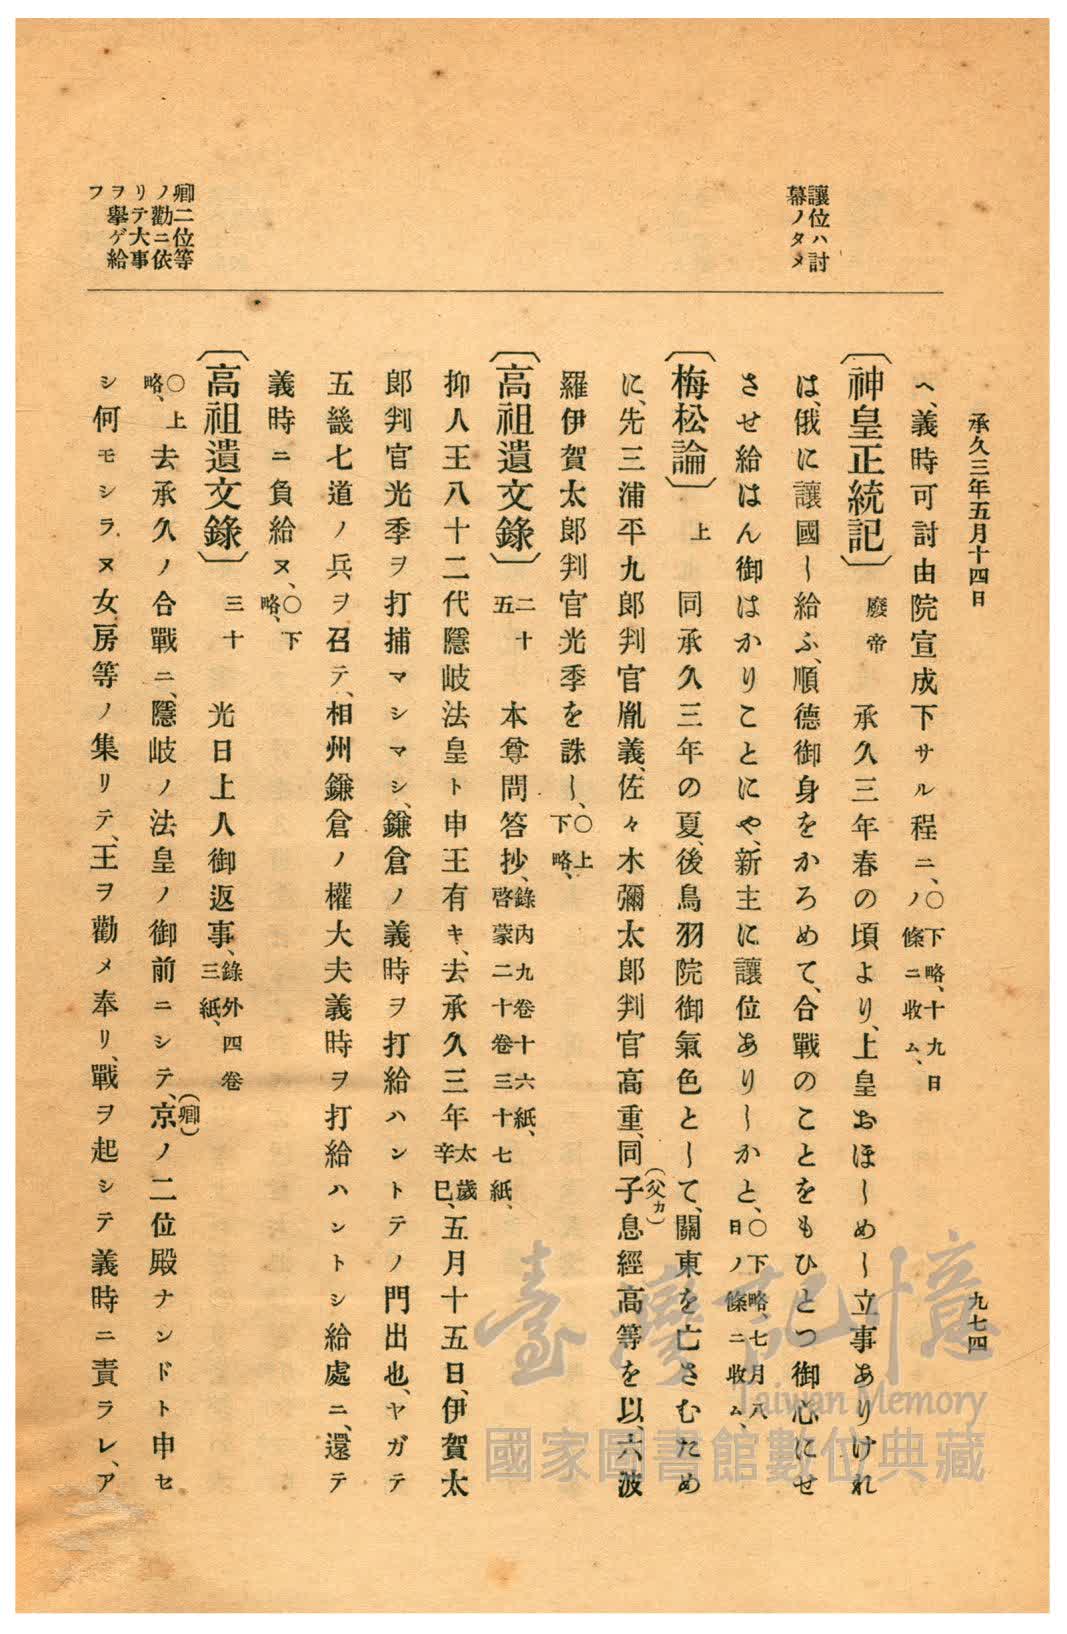 承久三年五月十四日
九七四
讓位ハ討
幕ノタメ
卿二位等
ノ勸ニ依
リテ大事
ヲ擧ゲ給
フ
へ、義時可討由院宣成下サル程ニ、〇下略、十九日ノ條ニ收ム、
〔神皇正統記〕 廢帝 承久三年春の頃より、上皇おほしめし立事ありけれ
は、俄に讓國し給ふ、順德御身をかろめて、合戰のことをもひとつ御心にせ
させ給はん御はかりことにや、新主に讓位ありしかと、〇下略、七月八日ノ條ニ收ム、
〔梅松論〕 上 同承久三年の夏、後鳥羽院御氣色として、關東を亡さむため
に、先三浦平九郎判官胤義、佐々木彌太郎判官高重、同子息(父カ)經高等を以、六波
羅伊賀太郎判官光季を誅し、〇上下略、
〔高祖遺文錄〕 二十五 本尊問答抄、錄內九卷十六紙、啓蒙二十卷三十七紙、
抑人王八十二代隱岐法皇ト申王有キ、去承久三年太歲辛巳、五月十五日、伊賀太
郞判官光季ヲ打捕マシマシ、鎌倉ノ義時ヲ打給ハントテノ門出也、ヤガテ
五畿七道ノ兵ヲ召テ、相州鎌倉ノ權大夫義時ヲ打給ハントシ給處ニ、還テ
義時ニ負給ヌ、〇下略、
〔高祖遺文錄〕 三十 光日上人御返事、錄外四卷三紙、
〇上略、去承久ノ合戰ニ、隱岐ノ法皇ノ御前ニシテ、京(卿)ノ二位殿ナンドト申セ
シ何モシラヌ女房等ノ集リテ、王ヲ勸メ奉リ、戰ヲ起シテ義時ニ責ラレ、ア
臺灣記憶
Taiwan Memory
國家圖書館數位典藏